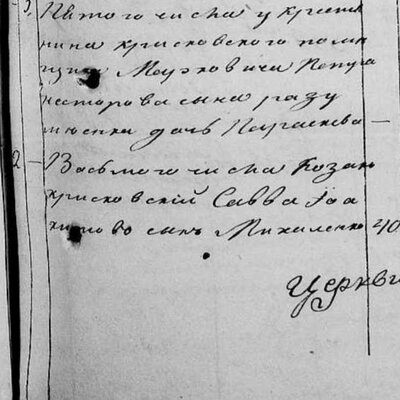 Пятого числа у крестья
нина крисковского поме
щика Марковича Петра
несторова сына разу
мпенка дочь Параскева —
2 — Восьмого числа козакъ
крисковскій Савва Іоа
кимовъ сынъ Михаленко 40
Церкви